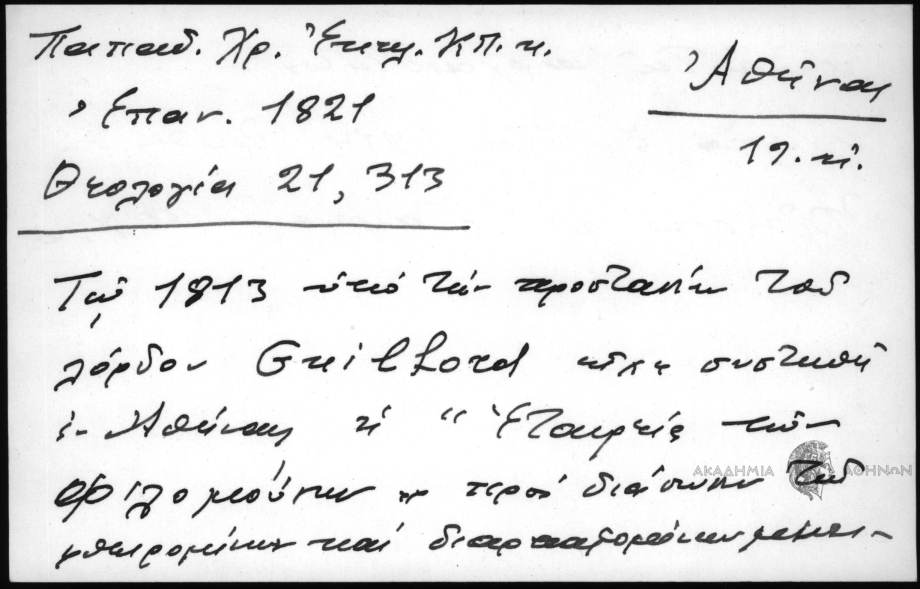 Παπαδ. Χρ. Ἐκκλ. Κπ. κ.
Ἐπαν. 1821
Θεολογία 21, 313
Ἀθῆναι
19. αἰ.
Τῷ 1813 ὑπὸ τὴν προστασίαν τοῦ
λόρδου Guilford εἶχε συστηθῆ
ἐν Ἀθήναις ἡ "Ἑταιρεία τῶν
Φιλομούσων πρὸς διάσωσιν τῶν
φθειρομένων καὶ διαρπαζομένων
ΑΚΑΔΗΜΙΑ ΑΘΗΝΩΝ